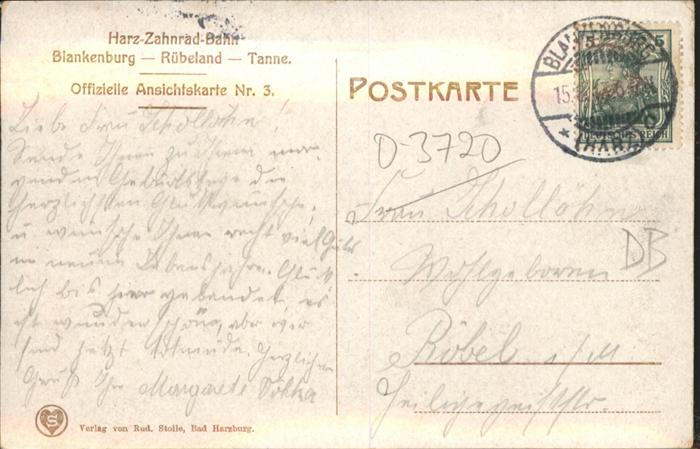 Harz-Zahnrad-Bahn
Blankenburg — Rübeland — Tanne.
Offizielle Ansichtskarte Nr. 3.
POSTKARTE
BLANKENBURG
15.
* (HARZ)
5 5
DEUTSCHES REICH
D-3720
DB
Liebe Frau Schollöhn!
Sende Ihnen zu Ihrem mor-
genden Geburtstage die
herzlichsten Glückwünsche,
u wünsche Ihnen recht viel Gutes
im neuen Lebensjahre. Glück-
lich bis hier gelandet, es
ist wunderschön, aber wir
sind jetzt totmüde. Herzlichen
Gruß Ihre Margarete
Frau Schollöhn
Wohlgeboren
Röbel a/M
Verlag von Rud. Stolle, Bad Harzburg.